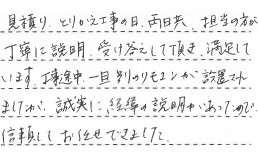 見積り、とりかえ工事の日、両日共、担当の方が
丁寧に説明、受け答えして頂き、満足して
います。工事途中、一旦別のリモコンが設置され
ましたが、誠実に経緯の説明があったので
信頼してお任せできました。